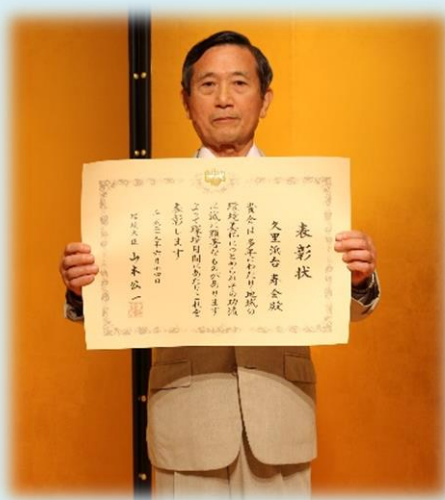 表彰状
久里浜台 寿会殿
貴会は多年にわたり地域の
環境美化につとめられその功績
は誠に顕著なものがあります
よって環境月間にあたりこれを
表彰します
平成二十八年六月十四日
環境大臣 山本公一